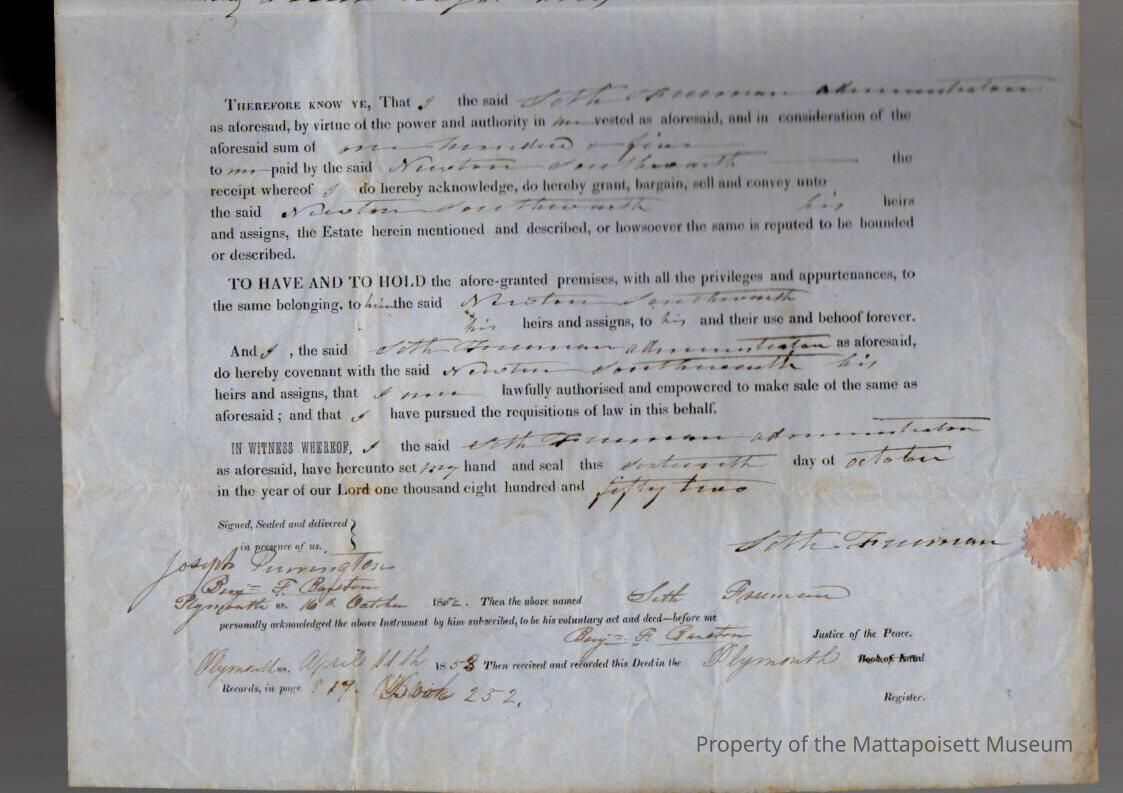 THEREFORE KNOW YE, That I the said Seth Freeman administrator
as aforesaid, by virtue of the power and authority in me vested as aforesaid, and in consideration of the
aforesaid sum of one hundred & five
to me paid by the said Newton Southworth the
receipt whereof I do hereby acknowledge, do hereby grant, bargain, sell and convey unto
the said Newton Southworth his heirs
and assigns, the Estate herein mentioned and described, or howsoever the same is reputed to be bounded
or described.
TO HAVE AND TO HOLD the afore-granted premises, with all the privileges and appurtenances, to
the same belonging, to him the said Newton Southworth
his heirs and assigns, to his and their use and behoof forever.
And I, the said Seth Freeman administrator as aforesaid,
do hereby covenant with the said Newton Southworth his
heirs and assigns, that I am lawfully authorised and empowered to make sale of the same as
aforesaid; and that I have pursued the requisitions of law in this behalf.
IN WITNESS WHEREOF, I the said Seth Freeman administrator
as aforesaid, have hereunto set my hand and seal this sixteenth day of october
in the year of our Lord one thousand eight hundred and fifty two
Signed, Sealed and delivered
in presence of us.
Seth Freeman
Joseph Purrington
Benj= F. Barstow
Plymouth ss. 16 October 1852. Then the above named Seth Freeman
personally acknowledged the above Instrument by him subscribed, to be his voluntary act and deed—before me
Benj= F. Barstow Justice of the Peace.
Plymouth ss. April 11th 1853 Then received and recorded this Deed in the Plymouth Book of Land
Records, in page 19. Book 252.
Register.
Property of the Mattapoisett Museum